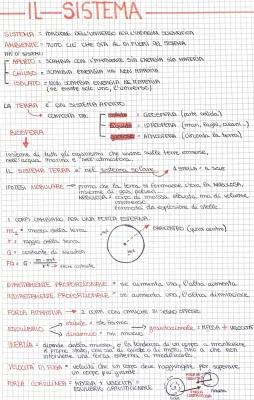 IL SISTEMA
SISTEMA = PORZIONE DELL'UNIVERSO PER L'INDAGINE SCIENTIFICA
AMBIENTE = TUTTO CIÒ CHE STA AL DI FUORI DEL SISTEMA
TIPI DI SISTEMI
APERTO = SCAMBIA CON L'AMBIENTE SIA ENERGIA SIA MATERIA
CHIUSO = SCAMBIA ENERGIA MA NON MATERIA
ISOLATO = NON SCAMBIA ENERGIA NÉ MATERIA
(ne esiste solo uno, l'universo)
LA TERRA È UN SISTEMA APERTO
COMPOSTA DA:
GEOSFERA (parte solida)
IDROSFERA (mari, fiumi, oceani...)
ATMOSFERA (circonda la terra)
BIOSFERA
insieme di tutti gli organismi che vivono sulle terre emerse,
nell'acqua marina e nell'atmosfera.
IL SISTEMA TERRA è nel sistema solare
STELLA = IL SOLE
IPOTESI NEBULARE = prima che la terra si formasse c'era la NEBULOSA,
insieme di gas, polveri...
NEBULOSA = corpo di massa elevata, ma di volume
formata da esplosione di stelle
I CORPI CAMBIANO PER UNA FORZA ESTERNA
= massa della terra
r = raggio della terra
G = costante di
BARICENTRO (quasi centro)
DIRETTAMENTE PROPORZIONALE = se aumenta uno, l'altro aumenta
INDIRETTAMENTE PROPORZIONALE = se aumenta uno, l'altro diminuisce
FORZA ATTRATTIVA
EQUILIBRIO
stabile = sta fermo
dinamico = in moto
gravitazionale = MASSA e VELOCITÀ
INERZIA = dipende dalla massa, è la tendenza di un corpo a mantenere
il proprio stato, che sia di quiete o di moto, fino a che non
interviene una forza esterna a modificarlo.
VELOCITÀ DI FUGA = velocità che un corpo deve raggiungere per superare
un corpo più grande
MASSA e VELOCITÀ =
EQUILIBRIO GRAVITAZIONALE